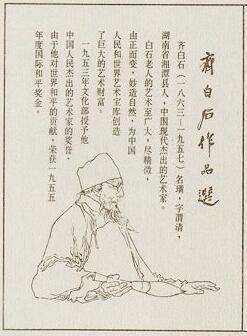 齐白石作品选
齐白石（一八六三—一九五七）名璜，字渭清，
湖南省湘潭县人，中国现代杰出的艺术家。
白石老人的艺术至广大，尽精微，
由正而变，妙造自然，为中国
人民和世界艺术宝库创造
了巨大的艺术财富。
一九五三年文化部授予他
中国人民杰出的艺术家的奖誉，
由于他对世界和平的贡献，荣获一九五五
年度国际和平奖金。